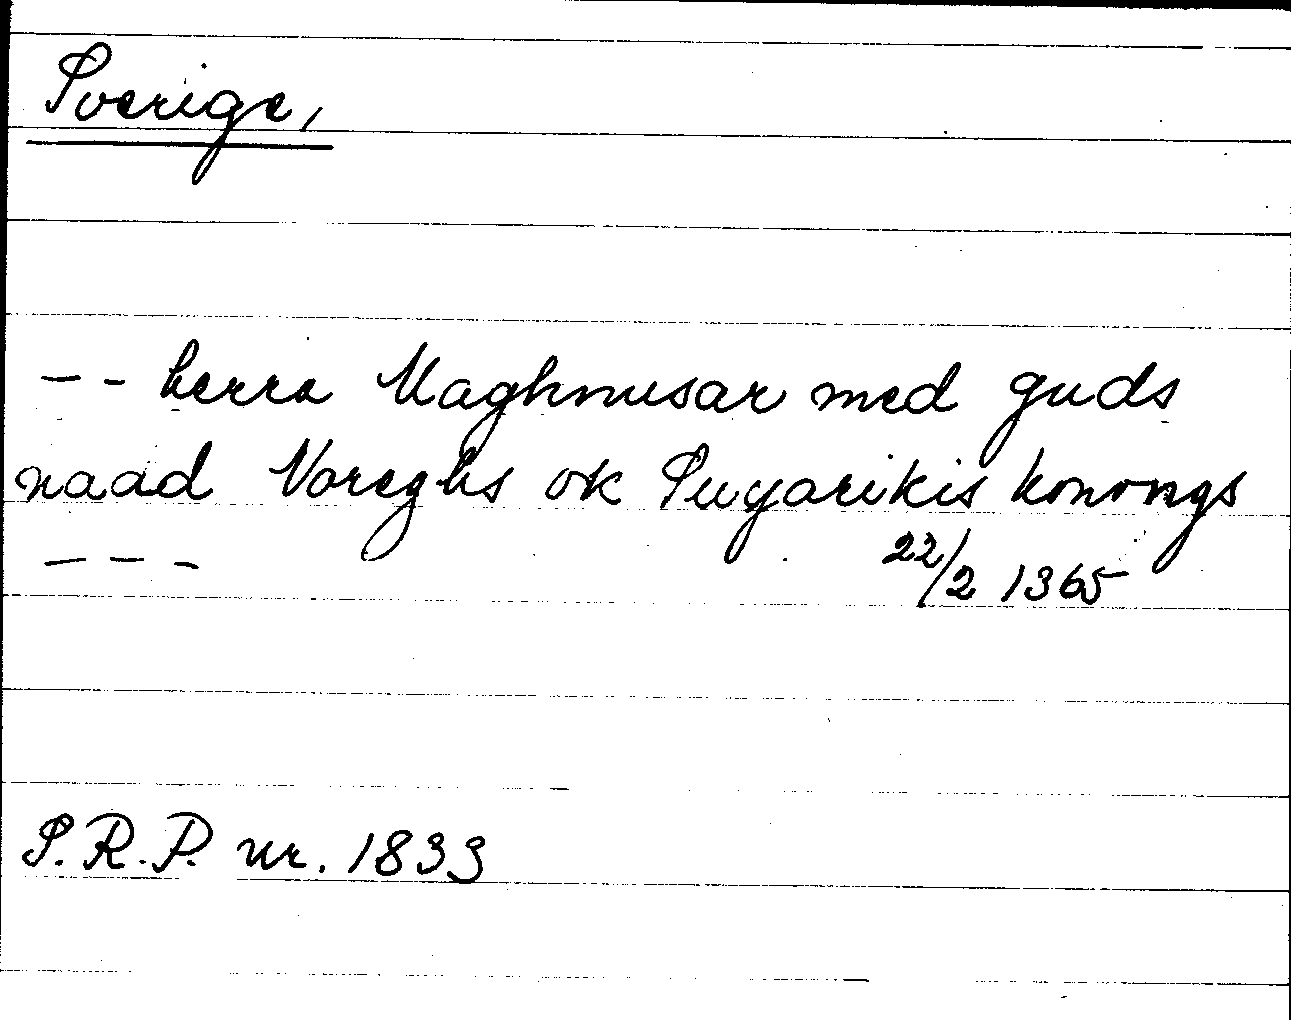 Sverige,
-- herra Maghnusar med guds
naad Noreghs ok Suyarikis konongs
---
22/2 1365
S.R.P. nr. 1833